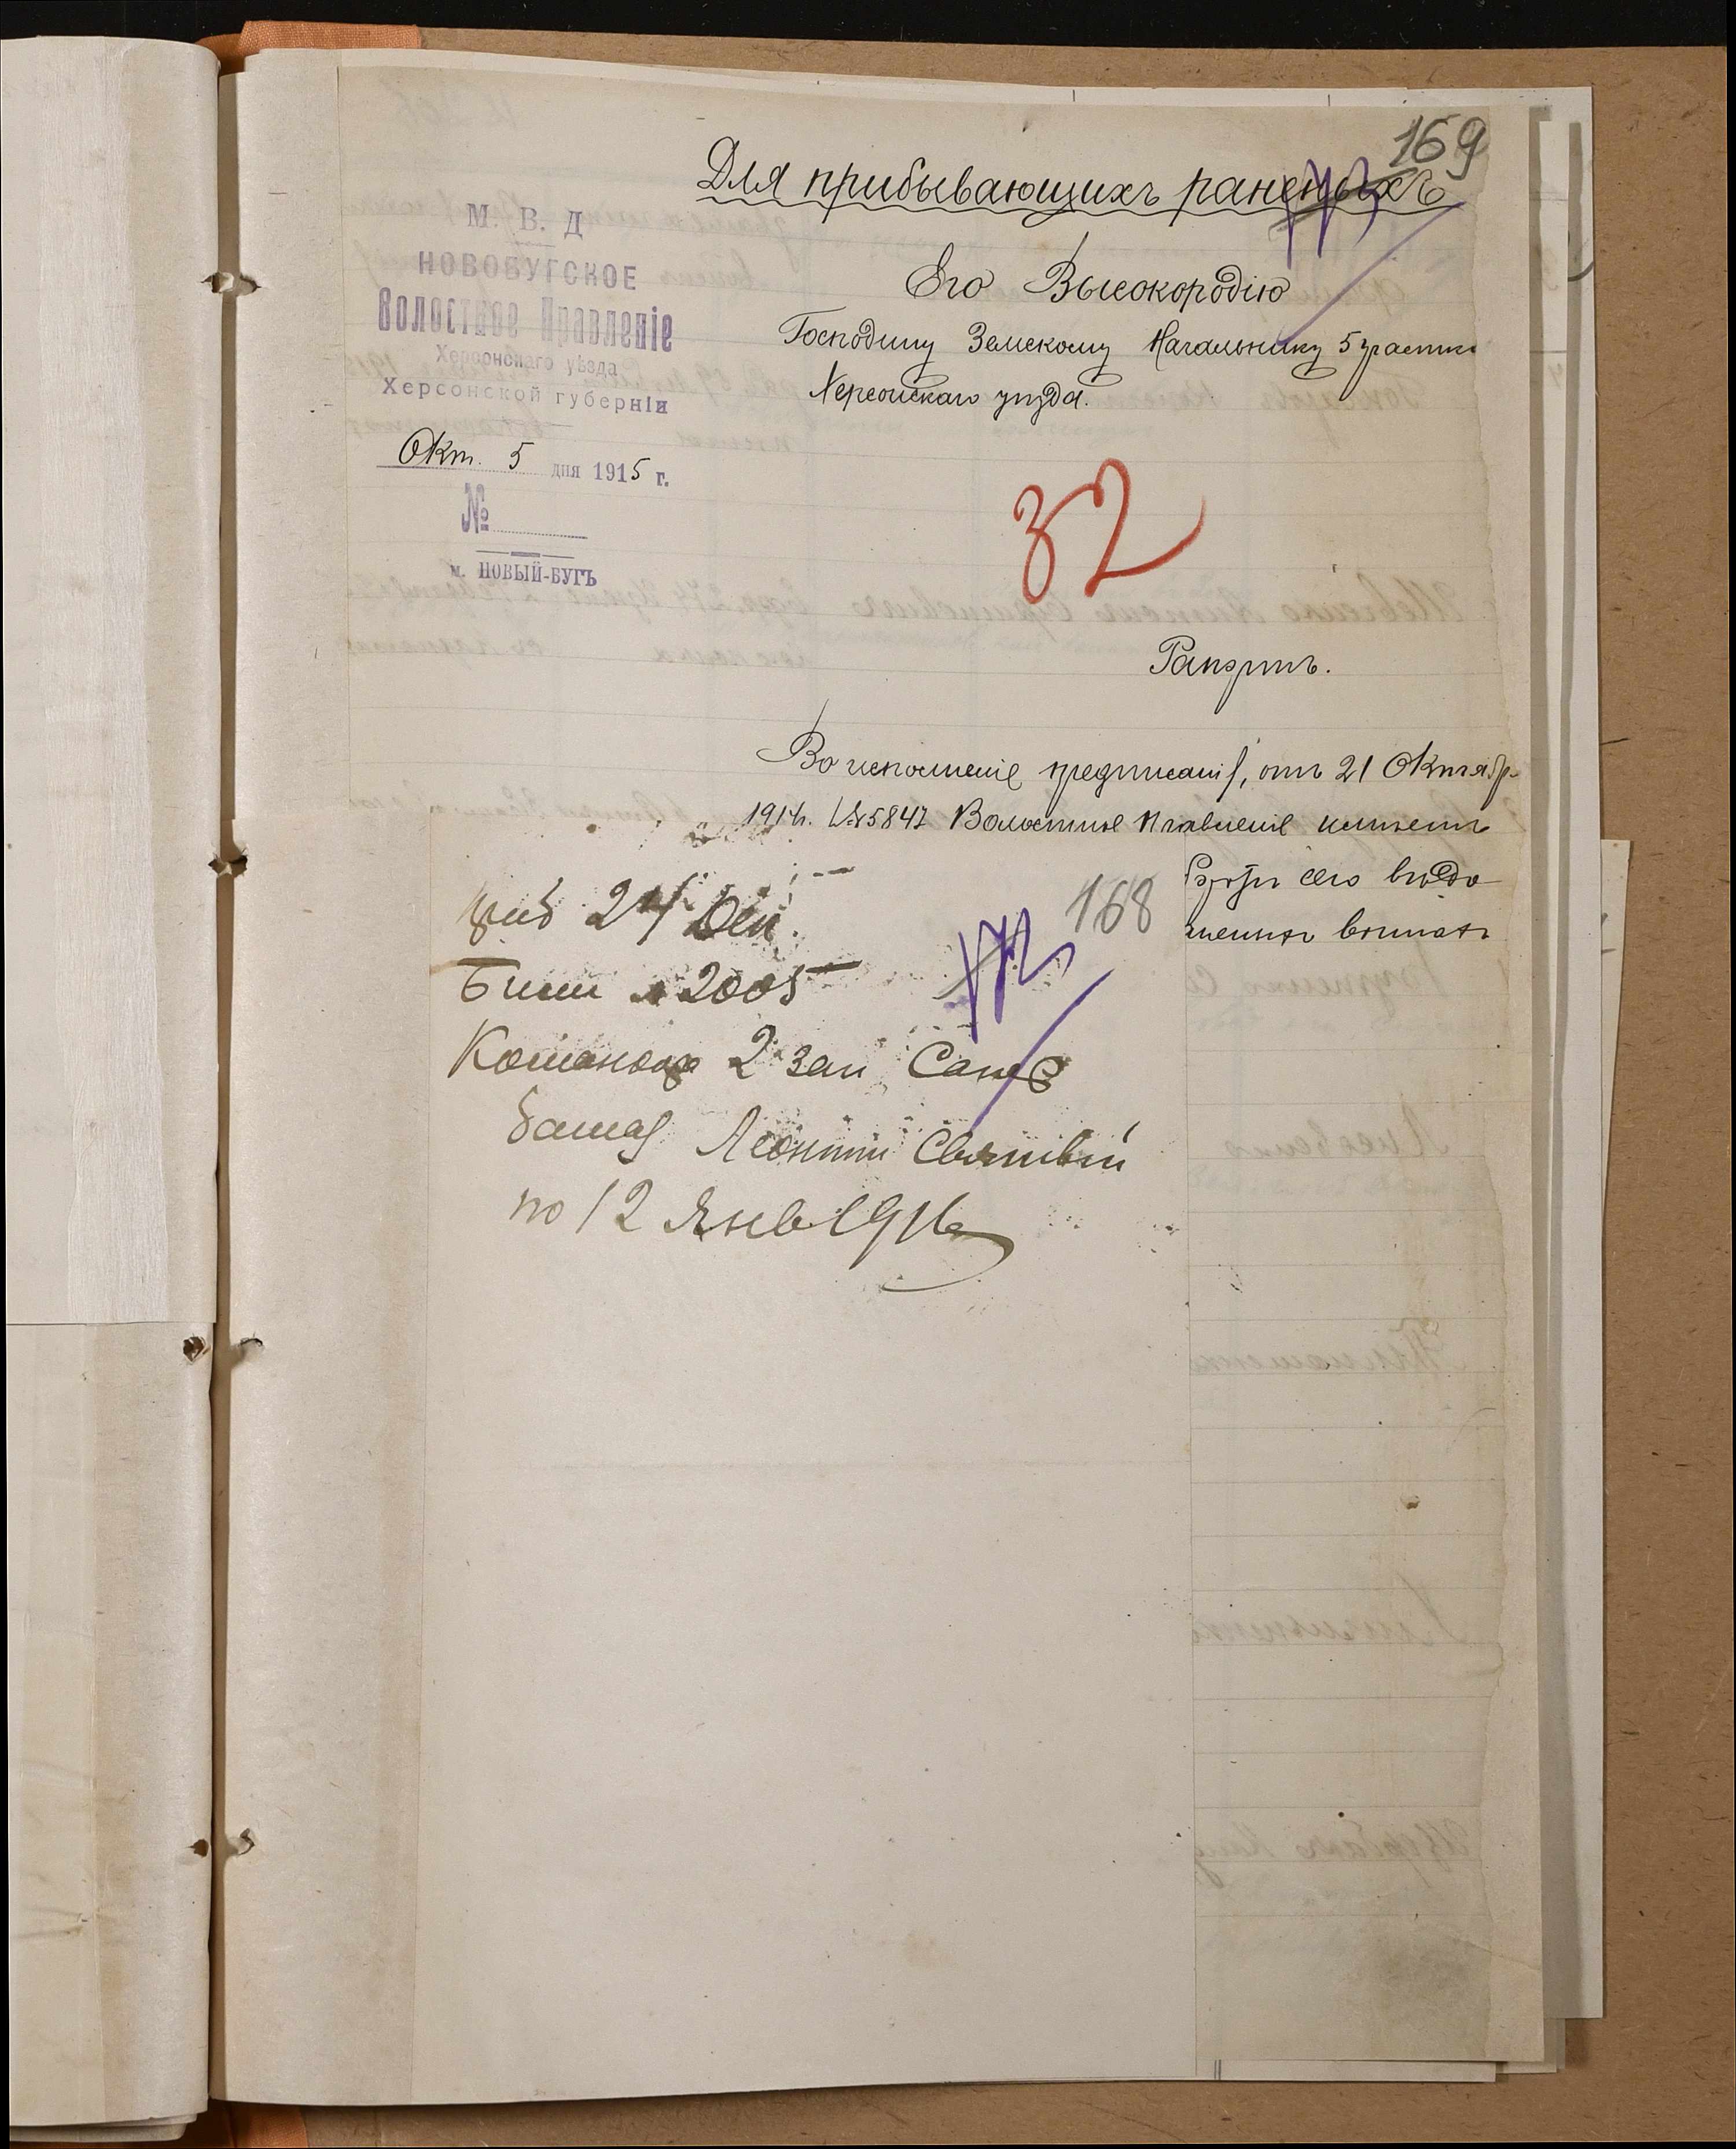 169
Для прибывающихъ раненыхъ
М. В. Д
НОВОБУГСКОЕ
Волостное Правленіе
Херсонскаго уѣзда
Херсонской губерніи
Окт. 5 дня 1915 г.
№
м. НОВЫЙ-БУГЪ
Его Высокородію
Господину Земскому Начальнику 5 участка
Херсонскаго уѣзда.
32
Рапортъ.
Во исполненіе предписанія, отъ 21 Октября
1914г. №5847 Волостное Правленіе
при семъ
168
24 Дек.
Билет № 2005
Команд 2 зап Сап
батал Леонтий
по 12 Янв 1916